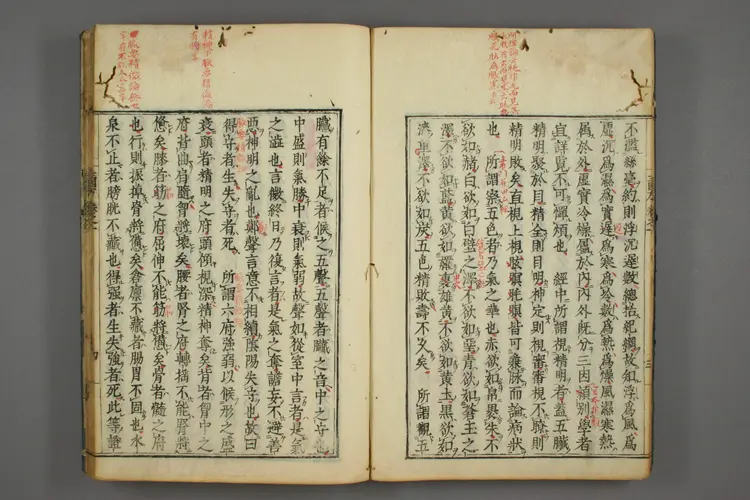 不濫絲毫約則浮沉遲數總括紀綱故知浮為風為
虛沉為濕為實遲為寒為冷數為熱為燥風濕寒熱
屬於外虛實冷燥屬於內內外既分三因須別學者
宜詳覽不可憚煩也 經中所謂視精明者蓋五臟
精明聚於目精全則目明神定則視審審視不了則
精明敗矣直視上視眩瞑眊瞑皆可兼脉而論病狀
也 所謂察五色者乃氣之華也赤欲如帛裹朱不
欲如赭白欲如白璧之澤不欲如堊青欲如蒼玉之
澤不欲如藍黃欲如羅裹雄黃不欲如黃土黑欲如
漆重澤不欲如炭五色精敗壽不久矣 所謂觀五
臟有餘不足者候之五聲五聲者臟之音中之守也
中盛則氣勝中衰則氣弱故聲如從室中言者是氣
之濕也言微終日乃復言者是氣之奪譫妄不避善
惡神明之亂也鄭聲言意不相續陰陽失守也故曰
得守者生失守者死 所謂六府強弱以候形之盛
衰頭者精明之府頭傾視深精神奪矣背者胷中之
府背曲肩隨胷將壞矣腰者腎之府轉搖不能腎將
憊矣膝者筋之府屈伸不能筋將憊矣骨者髓之府
也行則振掉骨將憊矣倉廩不藏者腸胃不固也水
泉不止者膀胱不藏也得強者生失強者死此等證